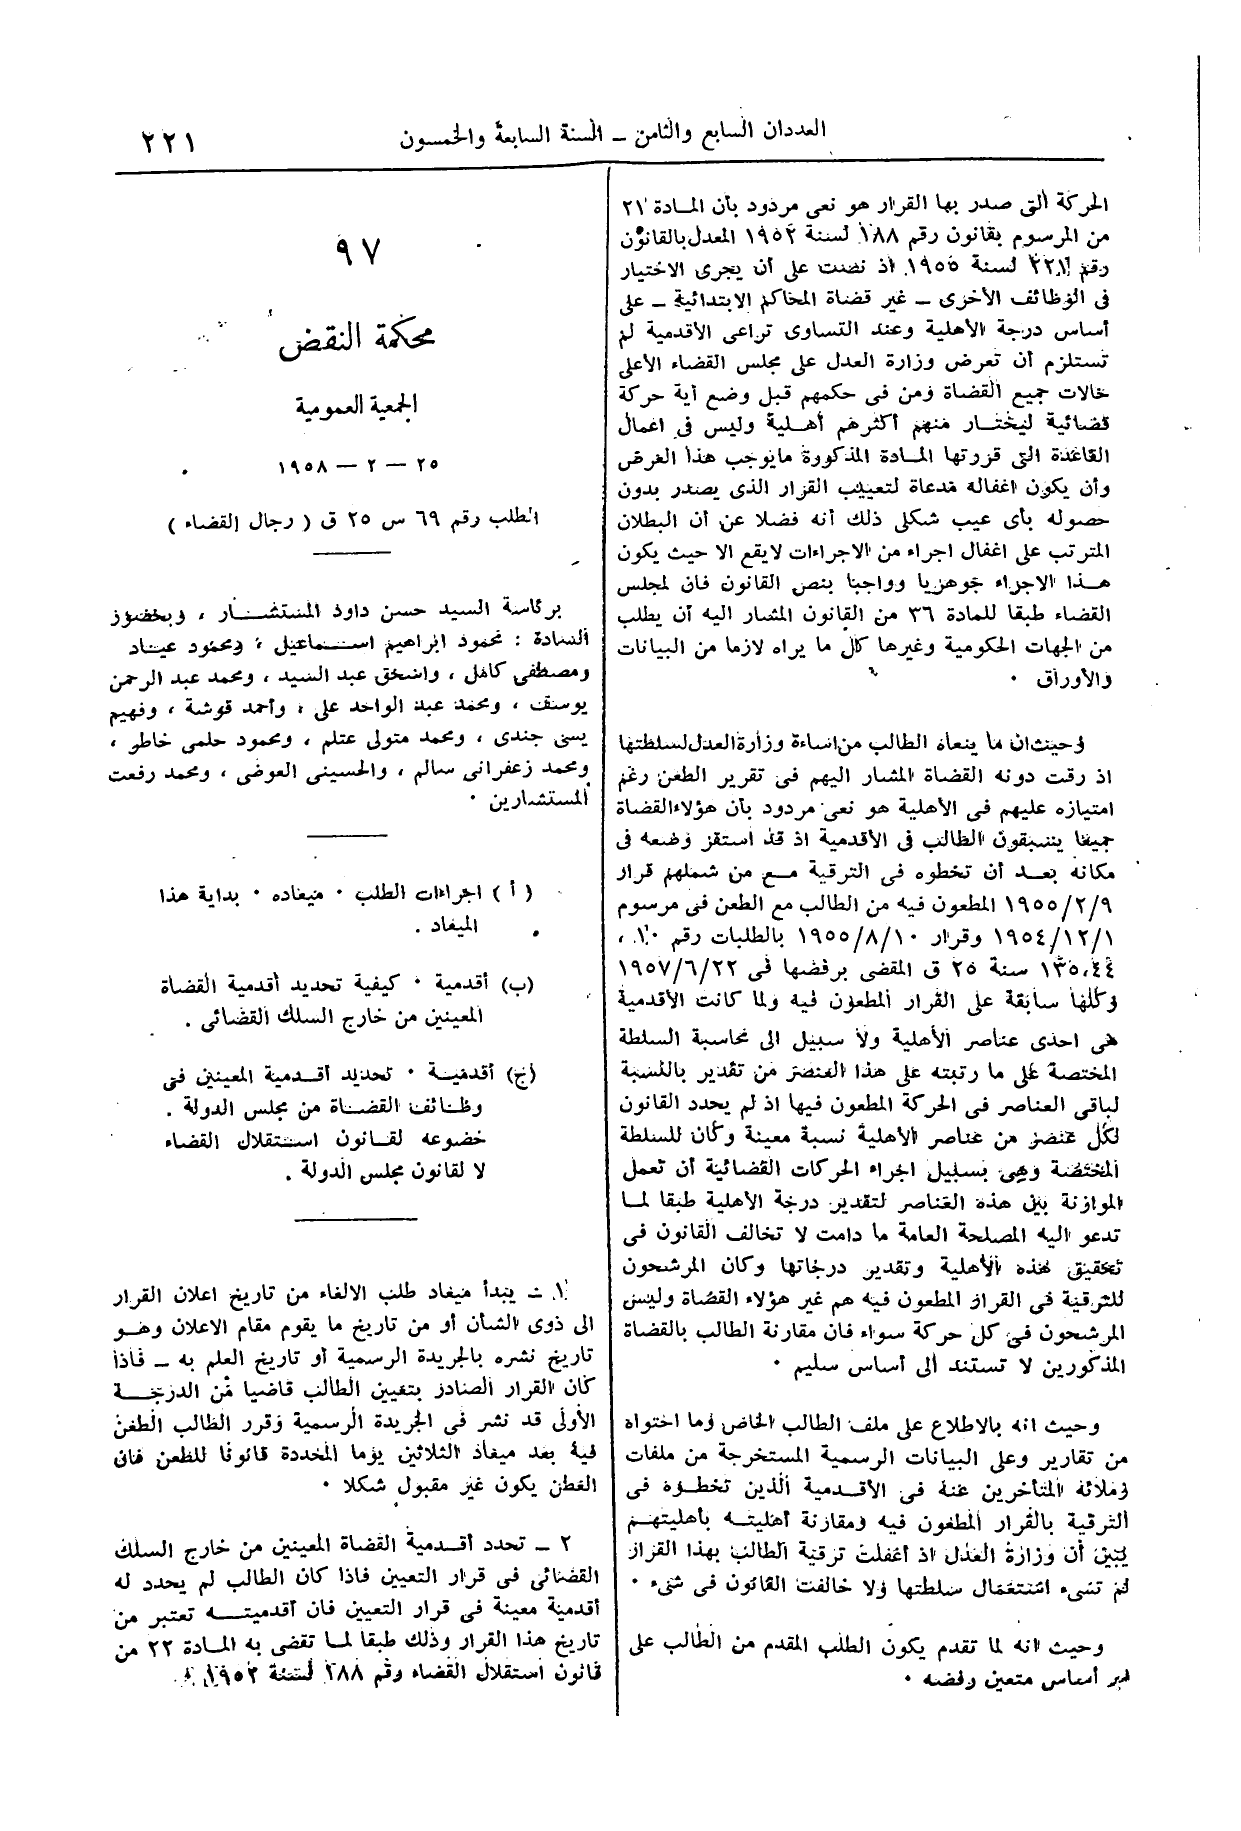 العددان السابع والثامن – السنة السابعة والخمسون
٢٢١
الحركة التى صدر بها القرار هو نعى مردود بأن المادة ٢١
من المرسوم بقانون رقم ١٨٨ لسنة ١٩٥٢ المعدل بالقانون
رقم ٢٢١ لسنة ١٩٥٥ اذ نصت على أن يجرى الاختيار
فى الوظائف الأخرى – غير قضاة المحاكم الابتدائية – على
أساس درجة الأهلية وعند التساوى تراعى الأقدمية لم
تستلزم أن تعرض وزارة العدل على مجلس القضاء الأعلى
حالات جميع القضاة ومن فى حكمهم قبل وضع أية حركة
قضائية ليختار منهم أكثرهم أهلية وليس فى اعمال
القاعدة التى قررتها المادة المذكورة مايوجب هذا الغرض
وأن يكون اغفاله مدعاة لتعييب القرار الذى يصدر بدون
حصوله بأى عيب شكلى ذلك أنه فضلا عن أن البطلان
المترتب على اغفال اجراء من الاجراءات لايقع الا حيث يكون
هذا الاجراء جوهريا وواجبا بنص القانون فان لمجلس
القضاء طبقا للمادة ٣٦ من القانون المشار اليه أن يطلب
من الجهات الحكومية وغيرها كل ما يراه لازما من البيانات
والأوراق ٠
وحيث ان ما ينعاه الطالب من اساءة وزارة العدل لسلطتها
اذ رقت دونه القضاة المشار اليهم فى تقرير الطعن رغم
امتيازه عليهم فى الأهلية هو نعى مردود بأن هؤلاء القضاة
جميعا يسبقون الطالب فى الأقدمية اذ قد استقر وضعه فى
مكانه بعد أن تخطوه فى الترقية مع من شملهم قرار
١٩٥٥/٢/٩ المطعون فيه من الطالب مع الطعن فى مرسوم
١٩٥٤/١٢/١ وقرار ١٩٥٥/٨/١٠ بالطلبات رقم ١٠ ،
١٣٥،٤٤ سنة ٢٥ ق المقضى برفضها فى ١٩٥٧/٦/٢٢
وكلها سابقة على القرار المطعون فيه ولما كانت الأقدمية
هى احدى عناصر الأهلية ولا سبيل الى محاسبة السلطة
المختصة على ما رتبته على هذا العنصر من تقدير بالنسبة
لباقى العناصر فى الحركة المطعون فيها اذ لم يحدد القانون
لكل عنصر من عناصر الأهلية نسبة معينة وكان للسلطة
المختصة وهى بسبيل اجراء الحركات القضائية أن تعمل
الموازنة بين هذه العناصر لتقدير درجة الأهلية طبقا لما
تدعو اليه المصلحة العامة ما دامت لا تخالف القانون فى
تحقيق هذه الأهلية وتقدير درجاتها وكان المرشحون
للترقية فى القرار المطعون فيه هم غير هؤلاء القضاة وليس
المرشحون فى كل حركة سواء فان مقارنة الطالب بالقضاة
المذكورين لا تستند الى أساس سليم ٠
وحيث انه بالاطلاع على ملف الطالب الخاص وما احتواه
من تقارير وعلى البيانات الرسمية المستخرجة من ملفات
زملائه المتأخرين عنه فى الأقدمية الذين تخطوه فى
الترقية بالقرار المطعون فيه ومقارنة أهليته بأهليتهم
يبين أن وزارة العدل اذ أغفلت ترقية الطالب بهذا القرار
لم تسىء استعمال سلطتها ولا خالفت القانون فى شىء ٠
وحيث انه لما تقدم يكون الطلب المقدم من الطالب على
غير أساس متعين رفضه ٠
٩٧
محكمة النقض
الجمعية العمومية
٢٥ – ٢ – ١٩٥٨
الطلب رقم ٦٩ س ٢٥ ق ( رجال القضاء )
برئاسة السيد حسن داود المستشار ، وبحضور
السادة : محمود ابراهيم اسماعيل ، ومحمود عياد
ومصطفى كامل ، واسحق عبد السيد ، ومحمد عبد الرحمن
يوسف ، ومحمد عبد الواحد على ، وأحمد قوشة ، وفهيم
يسى جندى ، ومحمد متولى عتلم ، ومحمود حلمى خاطر ،
ومحمد زعفرانى سالم ، والحسينى العوضى ، ومحمد رفعت
المستشارين ٠
( أ ) اجراءات الطلب ٠ ميعاده ٠ بداية هذا
الميعاد .
(ب) أقدمية ٠ كيفية تحديد أقدمية القضاة
المعينين من خارج السلك القضائى .
(ج) أقدمية ٠ تحديد أقدمية المعينين فى
وظائف القضاة من مجلس الدولة .
خضوعه لقانون استقلال القضاء
لا لقانون مجلس الدولة .
١ – يبدأ ميعاد طلب الالغاء من تاريخ اعلان القرار
الى ذوى الشأن أو من تاريخ ما يقوم مقام الاعلان وهو
تاريخ نشره بالجريدة الرسمية أو تاريخ العلم به – فاذا
كان القرار الصادر بتعيين الطالب قاضيا من الدرجة
الأولى قد نشر فى الجريدة الرسمية وقرر الطالب الطعن
فيه بعد ميعاد الثلاثين يوما المحددة قانونا للطعن فان
الطعن يكون غير مقبول شكلا ٠
٢ – تحدد أقدمية القضاة المعينين من خارج السلك
القضائى فى قرار التعيين فاذا كان الطالب لم يحدد له
أقدمية معينة فى قرار التعيين فان أقدميته تعتبر من
تاريخ هذا القرار وذلك طبقا لما تقضى به المادة ٢٢ من
قانون استقلال القضاء رقم ١٨٨ لسنة ١٩٥٢ .